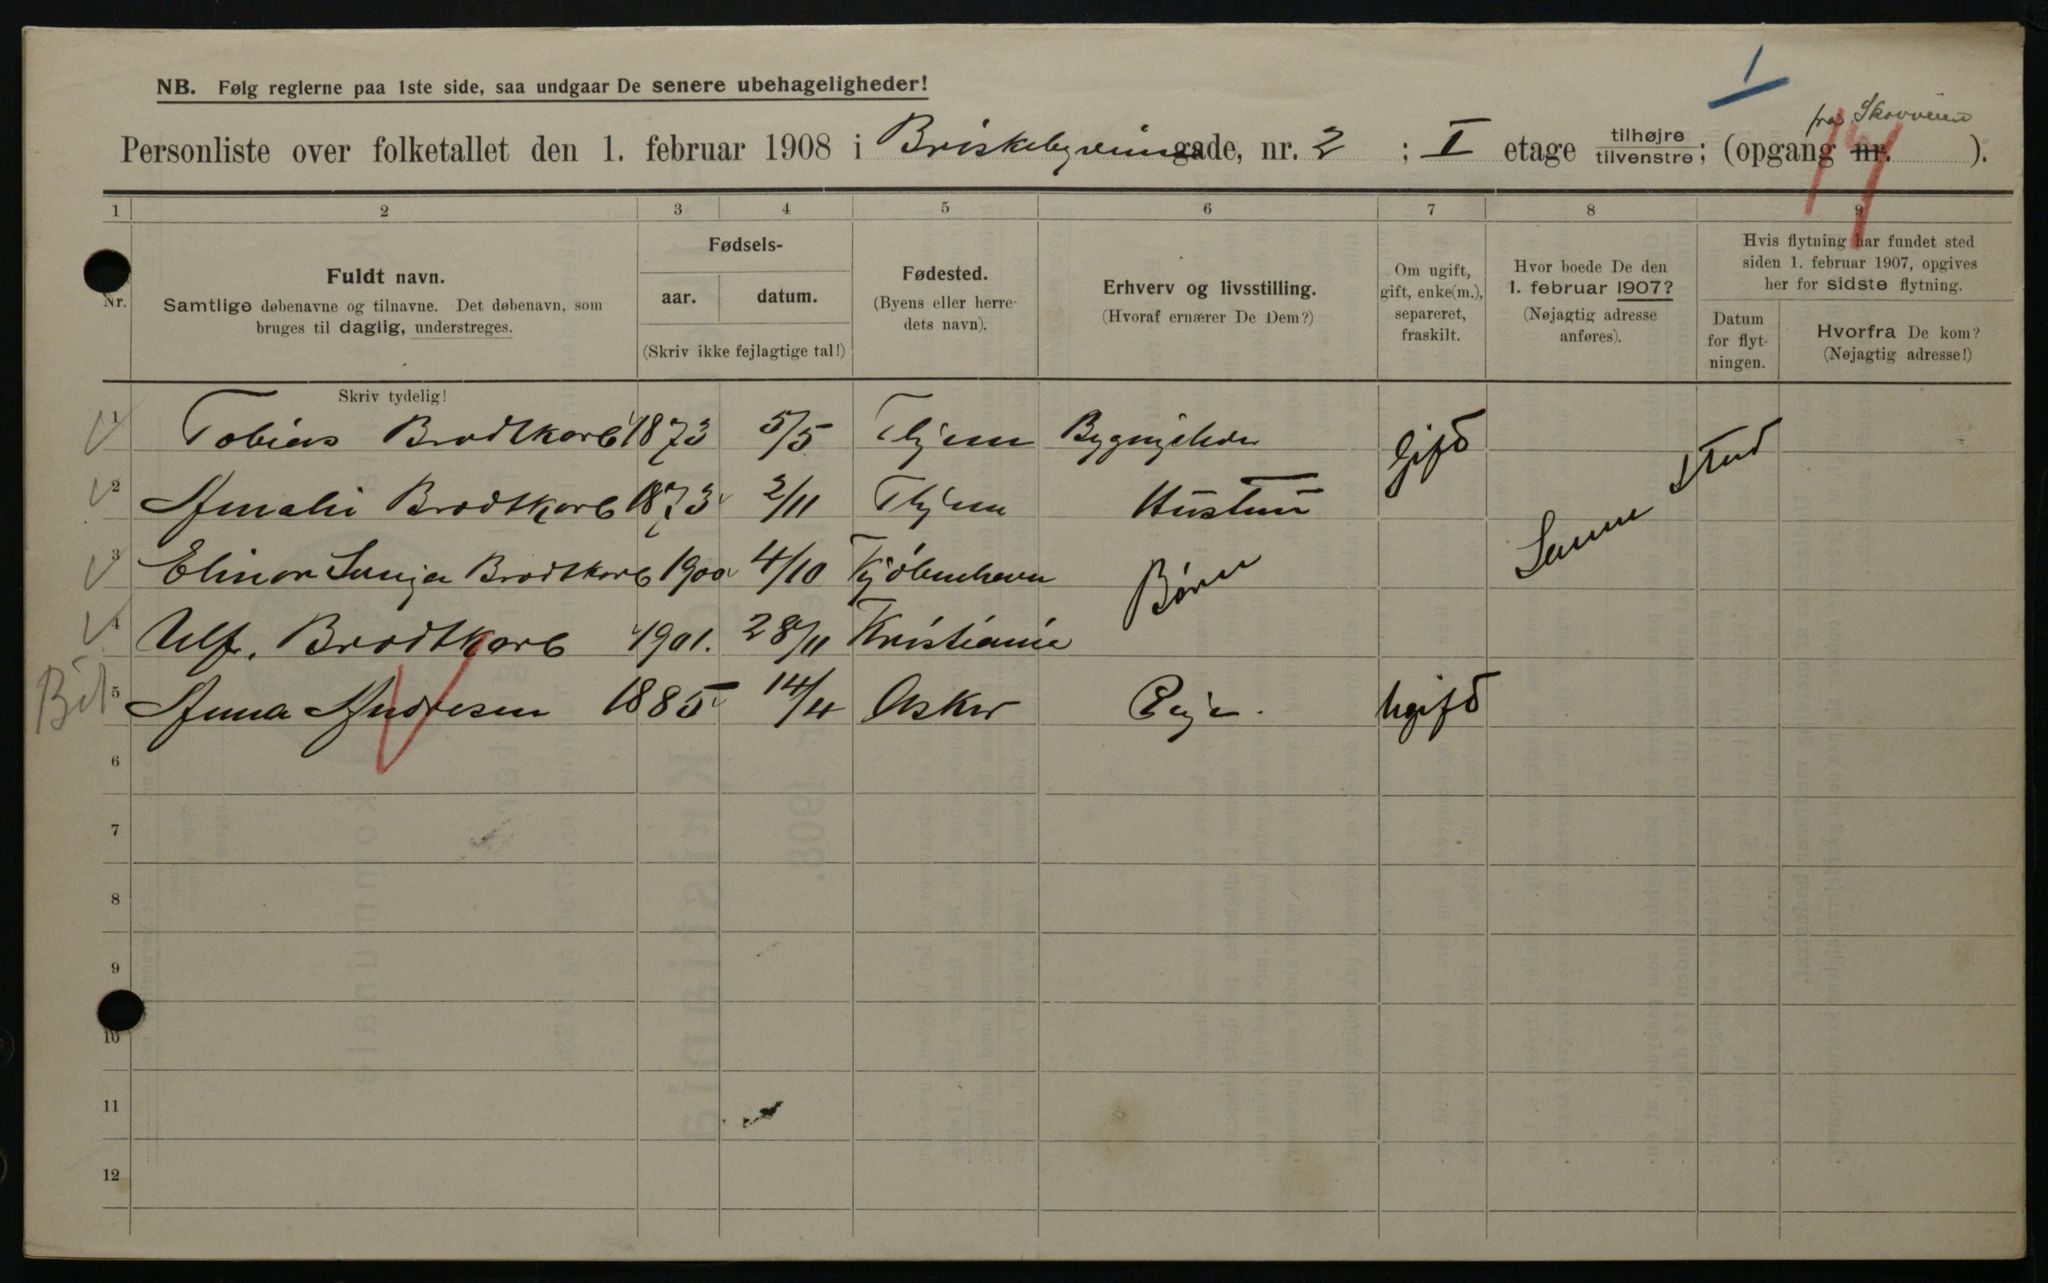 1
NB. Følg reglerne paa 1ste side, saa undgaar De senere ubehageligheder!
fra Skovveien
Personliste over folketallet den 1. februar 1908 i Briskebyveien gade, nr. 2 ; I etage tilhøjre tilvenstre; (opgang nr. ).
1 2 3 4 5 6 7 8 9
Nr.
Fuldt navn.
Samtlige døbenavne og tilnavne. Det døbenavn, som
bruges til daglig, understreges.
Skriv tydelig!
Fødsels-
aar. datum.
(Skriv ikke fejlagtige tal!)
Fødested.
(Byens eller herre-
dets navn).
Erhverv og livsstilling.
(Hvoraf ernærer De Dem?)
Om ugift,
gift, enke(m.),
separeret,
fraskilt.
Hvor boede De den
1. februar 1907?
(Nøjagtig adresse
anføres).
Hvis flytning har fundet sted
siden 1. februar 1907, opgives
her for sidste flytning.
Datum
for flyt-
ningen.
Hvorfra De kom?
(Nøjagtig adresse!)
1 Tobias Brodtkorb 1873 5/5 Thjem gift
2 Amalie Brodtkorb 1873 2/11 Thjem Hustru Samme sted
3 Elinor Brodtkorb 1900 4/10 Kjøbenhavn Børn
4 Ulf. Brodtkorb 1901. 28/11 Kristiania
5 Anna Andresen 1885 14/4 Asker Pige. Ugift
6
7
8
9
10
11
12